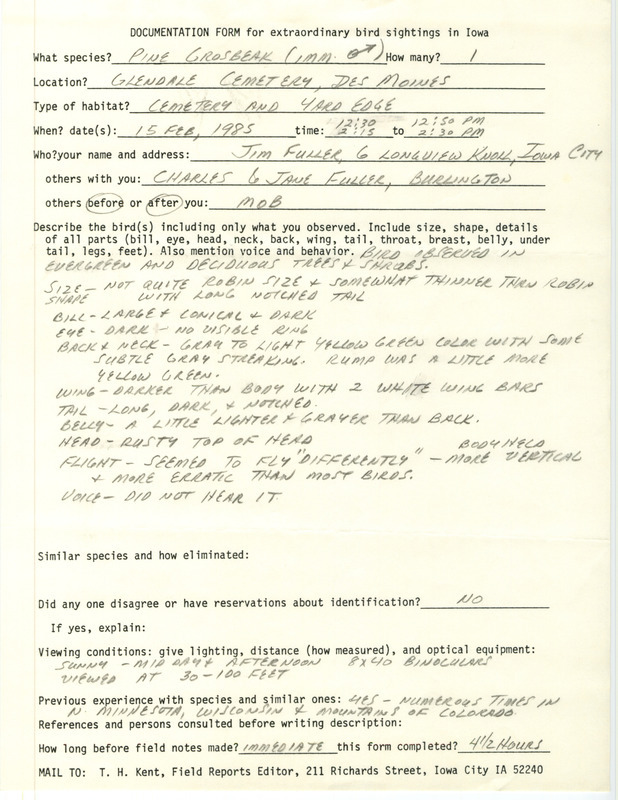 DOCUMENTATION FORM for extraordinary bird sightings in Iowa
What species? PINE GROSBEAK (IMM. ♂) How many? 1
Location? GLENDALE CEMETERY, DES MOINES
Type of habitat? CEMETERY AND YARD EDGE
12:30 12:50 PM
When? date(s): 15 FEB, 1985 time: 2:15 to 2:30 PM
Who? your name and address: JIM FULLER, 6 LONGVIEW KNOLL, IOWA CITY
others with you: CHARLES & JANE FULLER, BURLINGTON
others before or after you: MOB
Describe the bird(s) including only what you observed. Include size, shape, details
of all parts (bill, eye, head, neck, back, wing, tail, throat, breast, belly, under
tail, legs, feet). Also mention voice and behavior. BIRD OBSERVED IN
EVERGREEN AND DECIDUOUS TREES & SHRUBS.
SIZE - NOT QUITE ROBIN SIZE & SOMEWHAT THINNER THAN ROBIN
SHAPE WITH LONG NOTCHED TAIL
BILL - LARGE & CONICAL & DARK
EYE - DARK - NO VISIBLE RING
BACK & NECK - GRAY TO LIGHT YELLOW GREEN COLOR WITH SOME
SUBTLE GRAY STREAKING. RUMP WAS A LITTLE MORE
YELLOW GREEN.
WING - DARKER THAN BODY WITH 2 WHITE WING BARS
TAIL - LONG, DARK, & NOTCHED.
BELLY - A LITTLE LIGHTER & GRAYER THAN BACK.
HEAD - RUSTY TOP OF HEAD BODY HELD
FLIGHT - SEEMED TO FLY "DIFFERENTLY" - MORE VERTICAL
& MORE ERRATIC THAN MOST BIRDS.
VOICE - DID NOT HEAR IT.
Similar species and how eliminated:
Did any one disagree or have reservations about identification? NO
If yes, explain:
Viewing conditions: give lighting, distance (how measured), and optical equipment:
SUNNY - MID DAY & AFTERNOON 8X40 BINOCULARS
VIEWED AT 30-100 FEET
Previous experience with species and similar ones: YES - NUMEROUS TIMES IN
N. MINNESOTA, WISCONSIN & MOUNTAINS OF COLORADO.
References and persons consulted before writing description:
How long before field notes made? IMMEDIATE this form completed? 4 1/2 HOURS
MAIL TO: T. H. Kent, Field Reports Editor, 211 Richards Street, Iowa City IA 52240